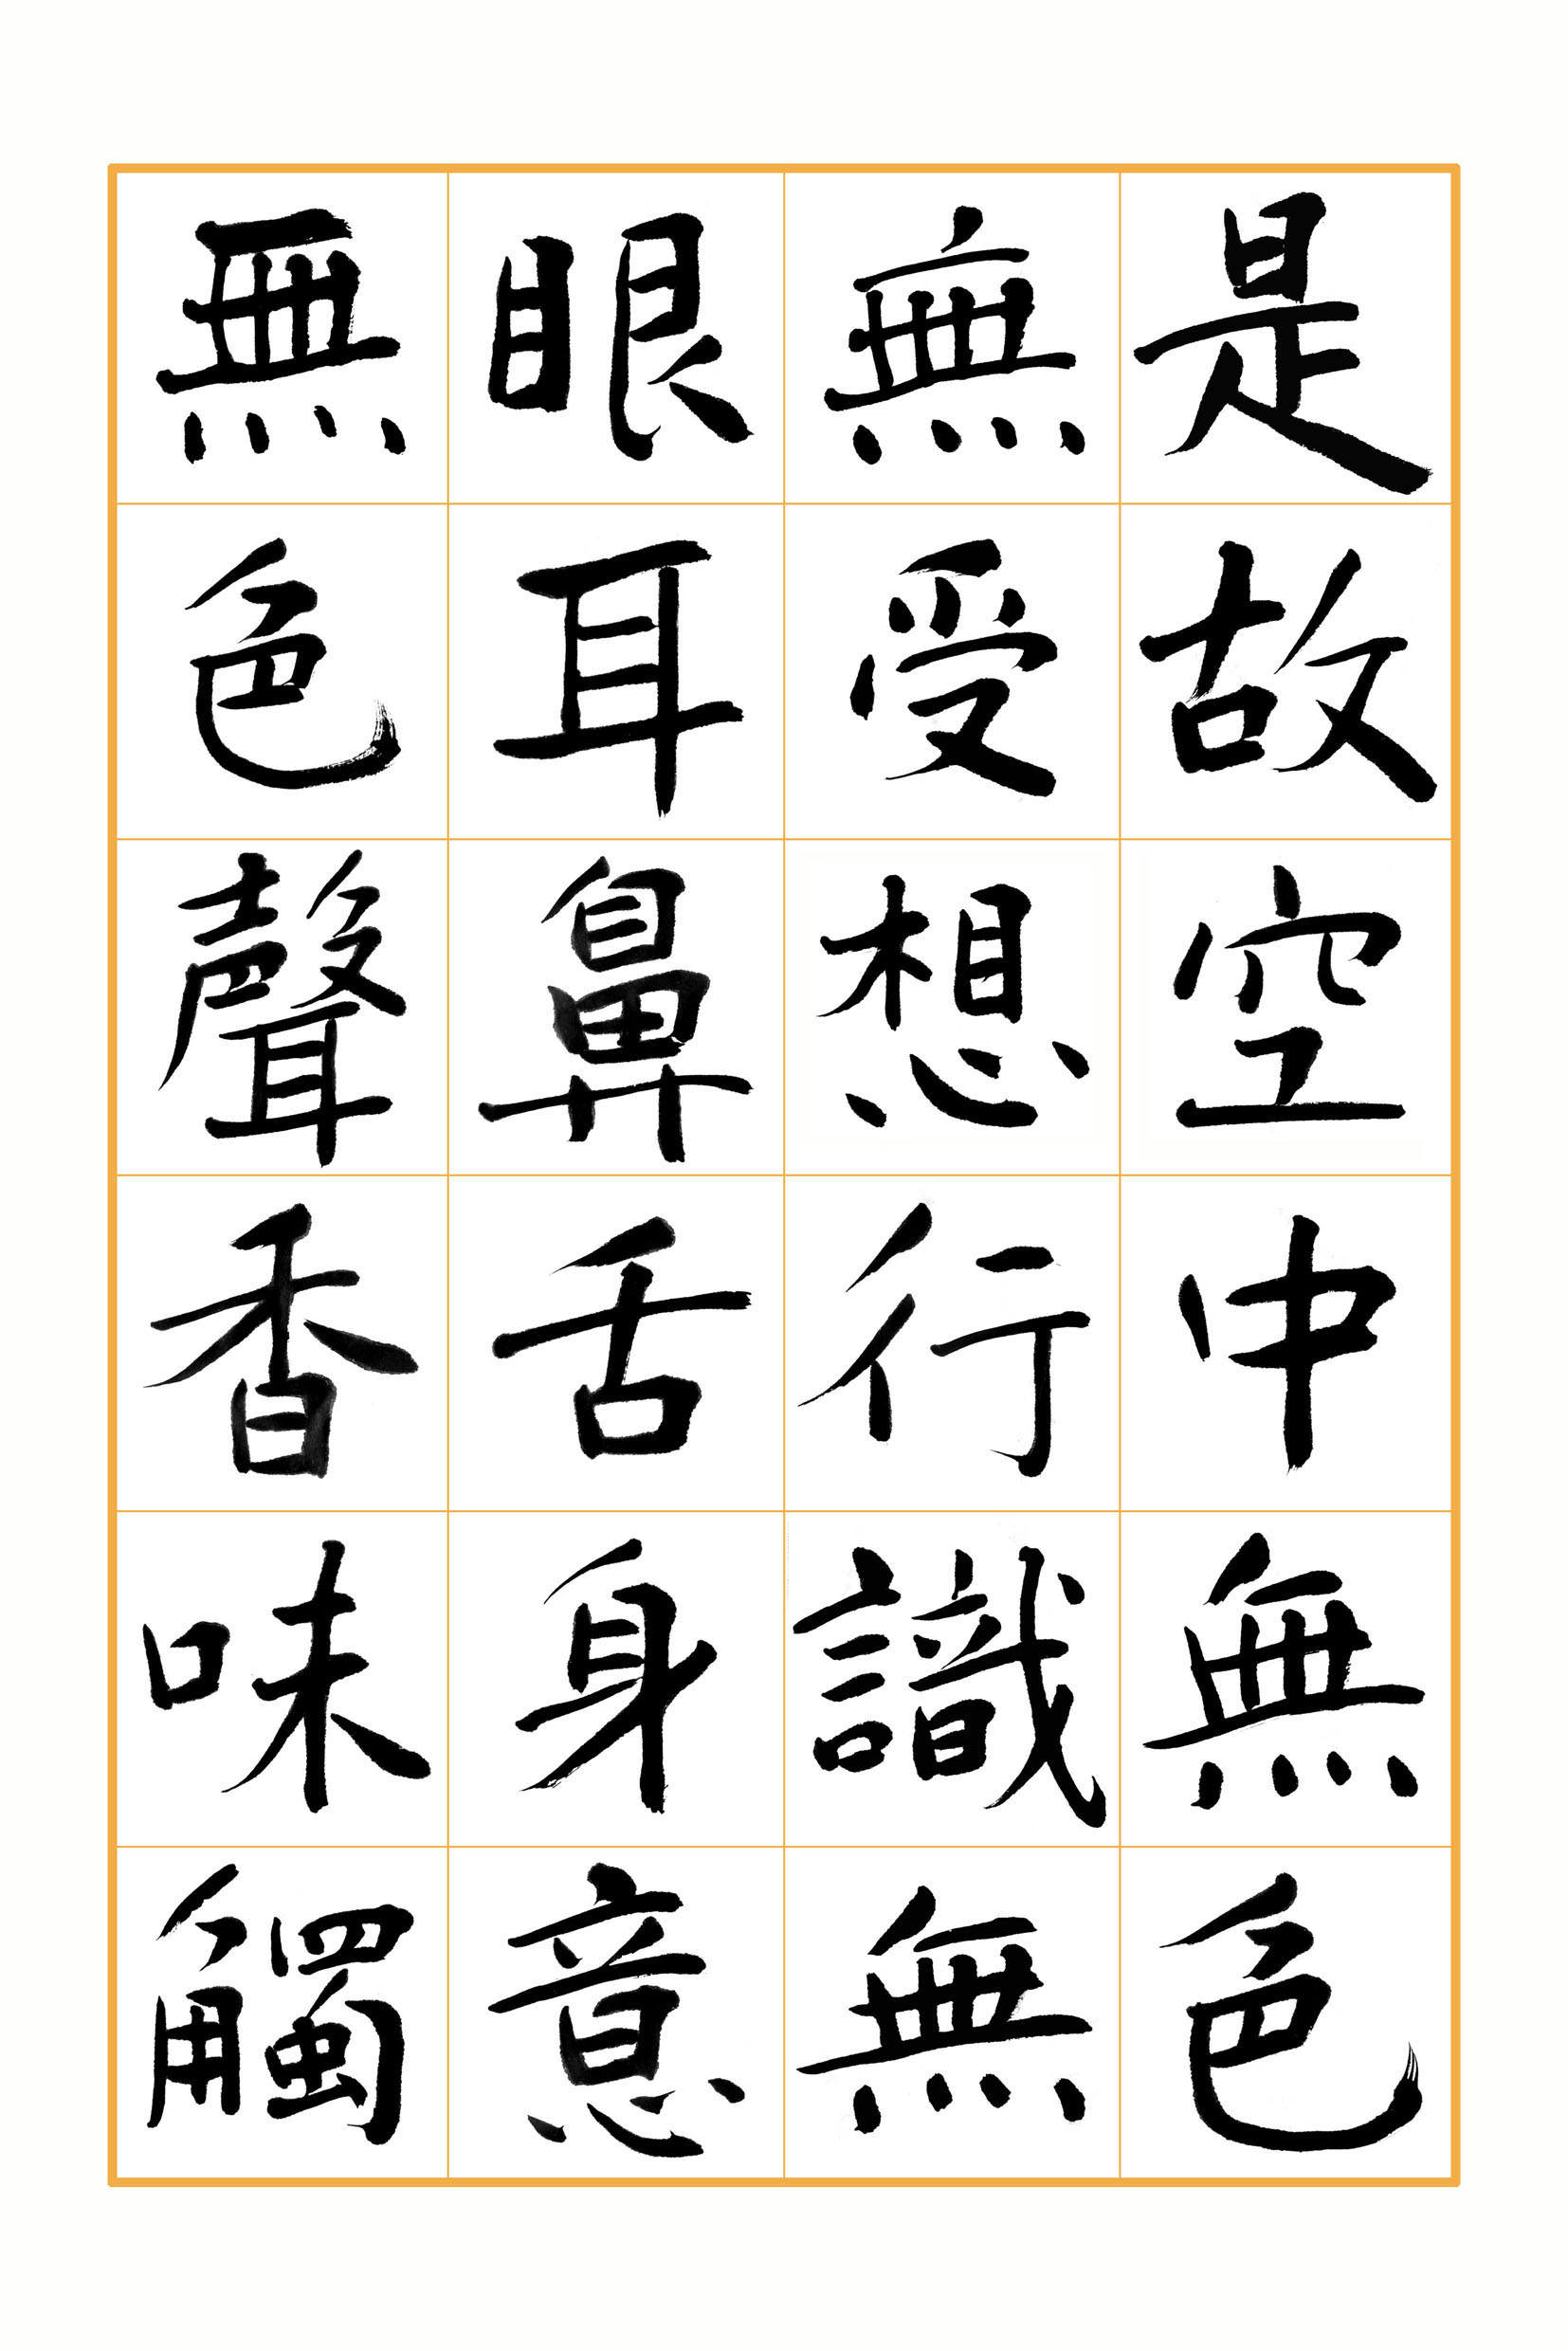 是故空中無色
無受想行識無
眼耳鼻舌身意
無色聲香味觸